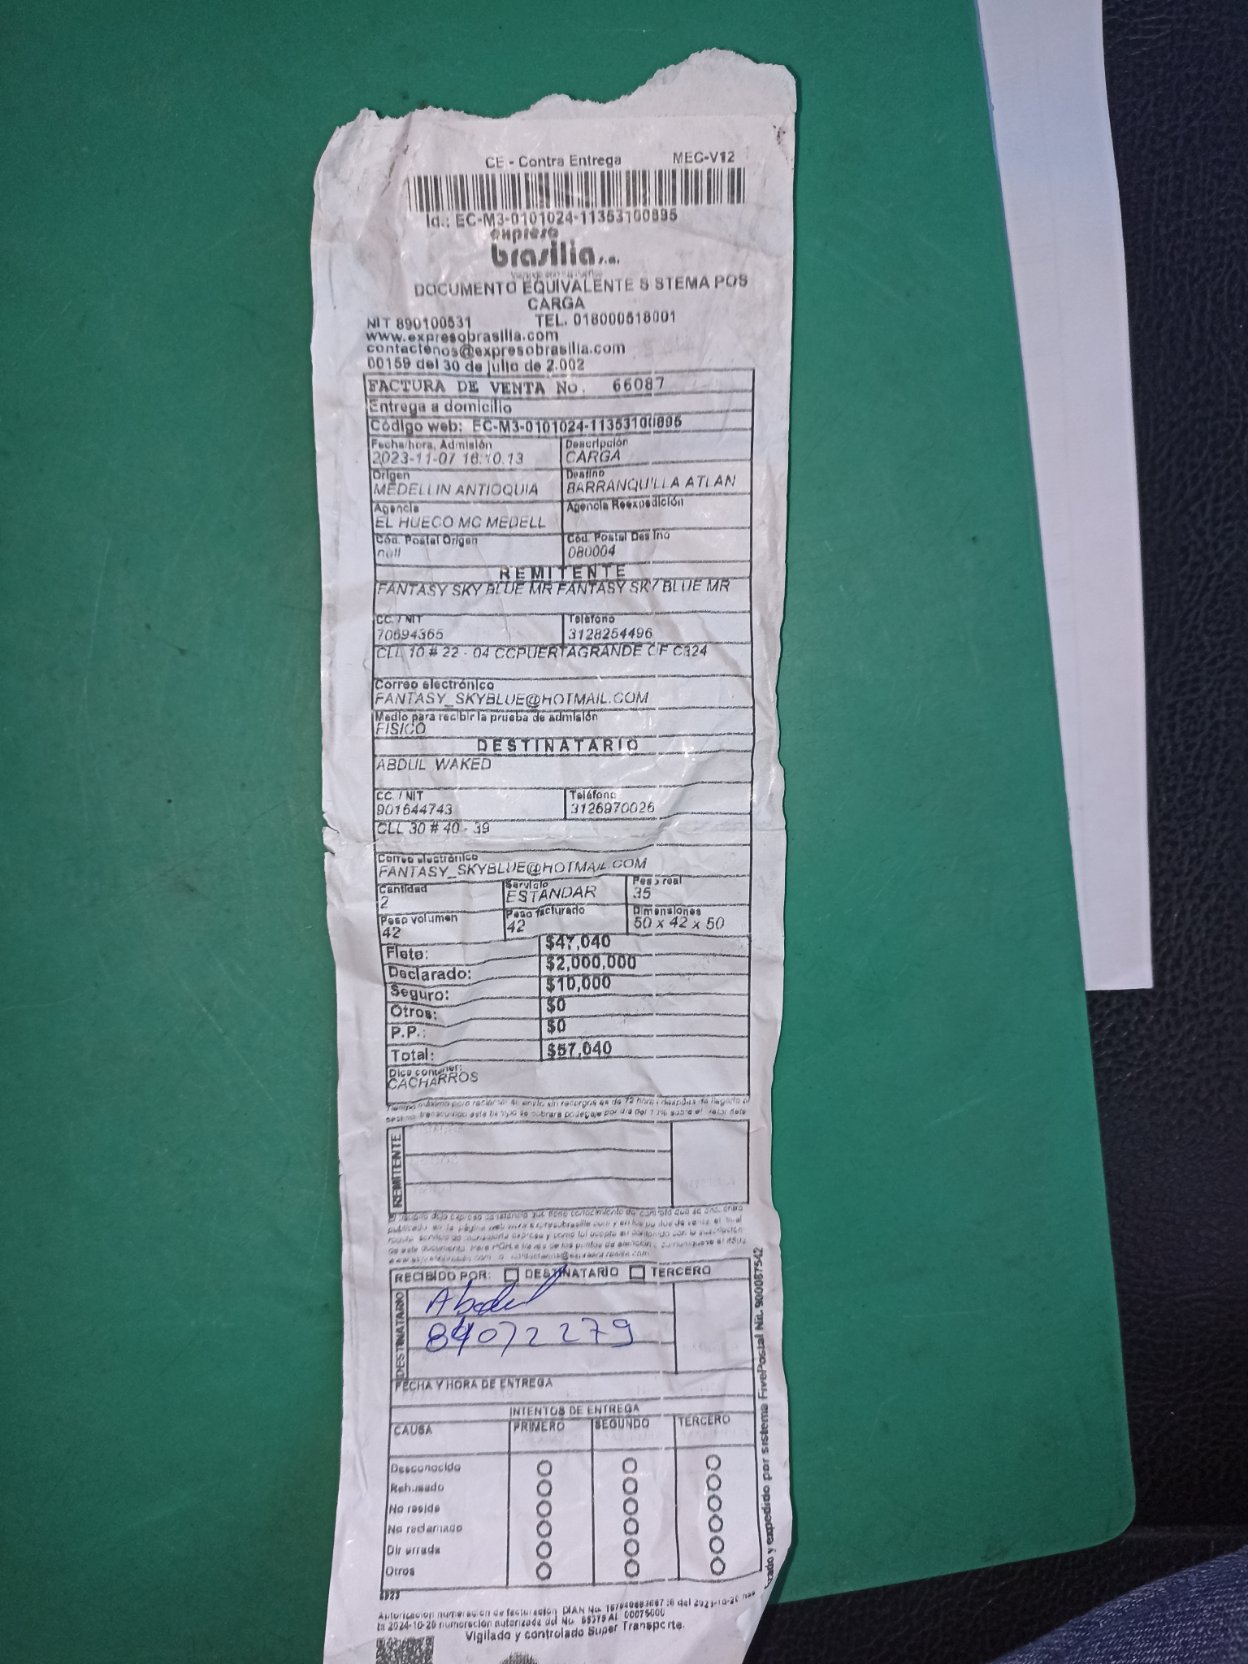 CE - Contra Entrega MEC-V12
Id.: EC-M3-0101024-11353100895
expreso
brasilia s.a.
DOCUMENTO EQUIVALENTE SISTEMA POS
CARGA
NIT 890100531 TEL. 018000518001
www.expresobrasilia.com
contactenos@expresobrasilia.com
00159 del 30 de julio de 2.002
FACTURA DE VENTA No. 66087
Entrega a domicilio
Código web: EC-M3-0101024-11353100895
Fecha/hora, Admisión Descripción
2023-11-07 16:10:13 CARGA
Origen Destino
MEDELLIN ANTIOQUIA BARRANQUILLA ATLAN
Agencia Agencia Reexpedición
EL HUECO MC MEDELL
Cód. Postal Origen Cód. Postal Destino
null 080004
REMITENTE
FANTASY SKY BLUE MR FANTASY SKY BLUE MR
CC. / NIT Teléfono
70694365 3128254496
CLL 10 # 22 - 04 CCPUERTAGRANDE OF C324
Correo electrónico
FANTASY_SKYBLUE@HOTMAIL.COM
Medio para recibir la prueba de admisión
FISICO
DESTINATARIO
ABDUL WAKED
CC. / NIT Teléfono
901644743 3126970026
CLL 30 # 40 - 39
Correo electrónico
FANTASY_SKYBLUE@HOTMAIL.COM
Cantidad Servicio Peso real
2 ESTANDAR 35
Peso volumen Peso facturado Dimensiones
42 42 50 x 42 x 50
Flete: $47,040
Declarado: $2,000,000
Seguro: $10,000
Otros: $0
P.P.: $0
Total: $57,040
Dice contener:
CACHARROS
REMITENTE
RECIBIDO POR: DESTINATARIO TERCERO
DESTINATARIO
Abdul
84072279
FECHA Y HORA DE ENTREGA
INTENTOS DE ENTREGA
CAUSA PRIMERO SEGUNDO TERCERO
Desconocido
Rehusado
No reside
No reclamado
Dir errada
Otros
Vigilado y controlado Super Transporte.
y expedido por sistema FivePostal Nit. 900087542